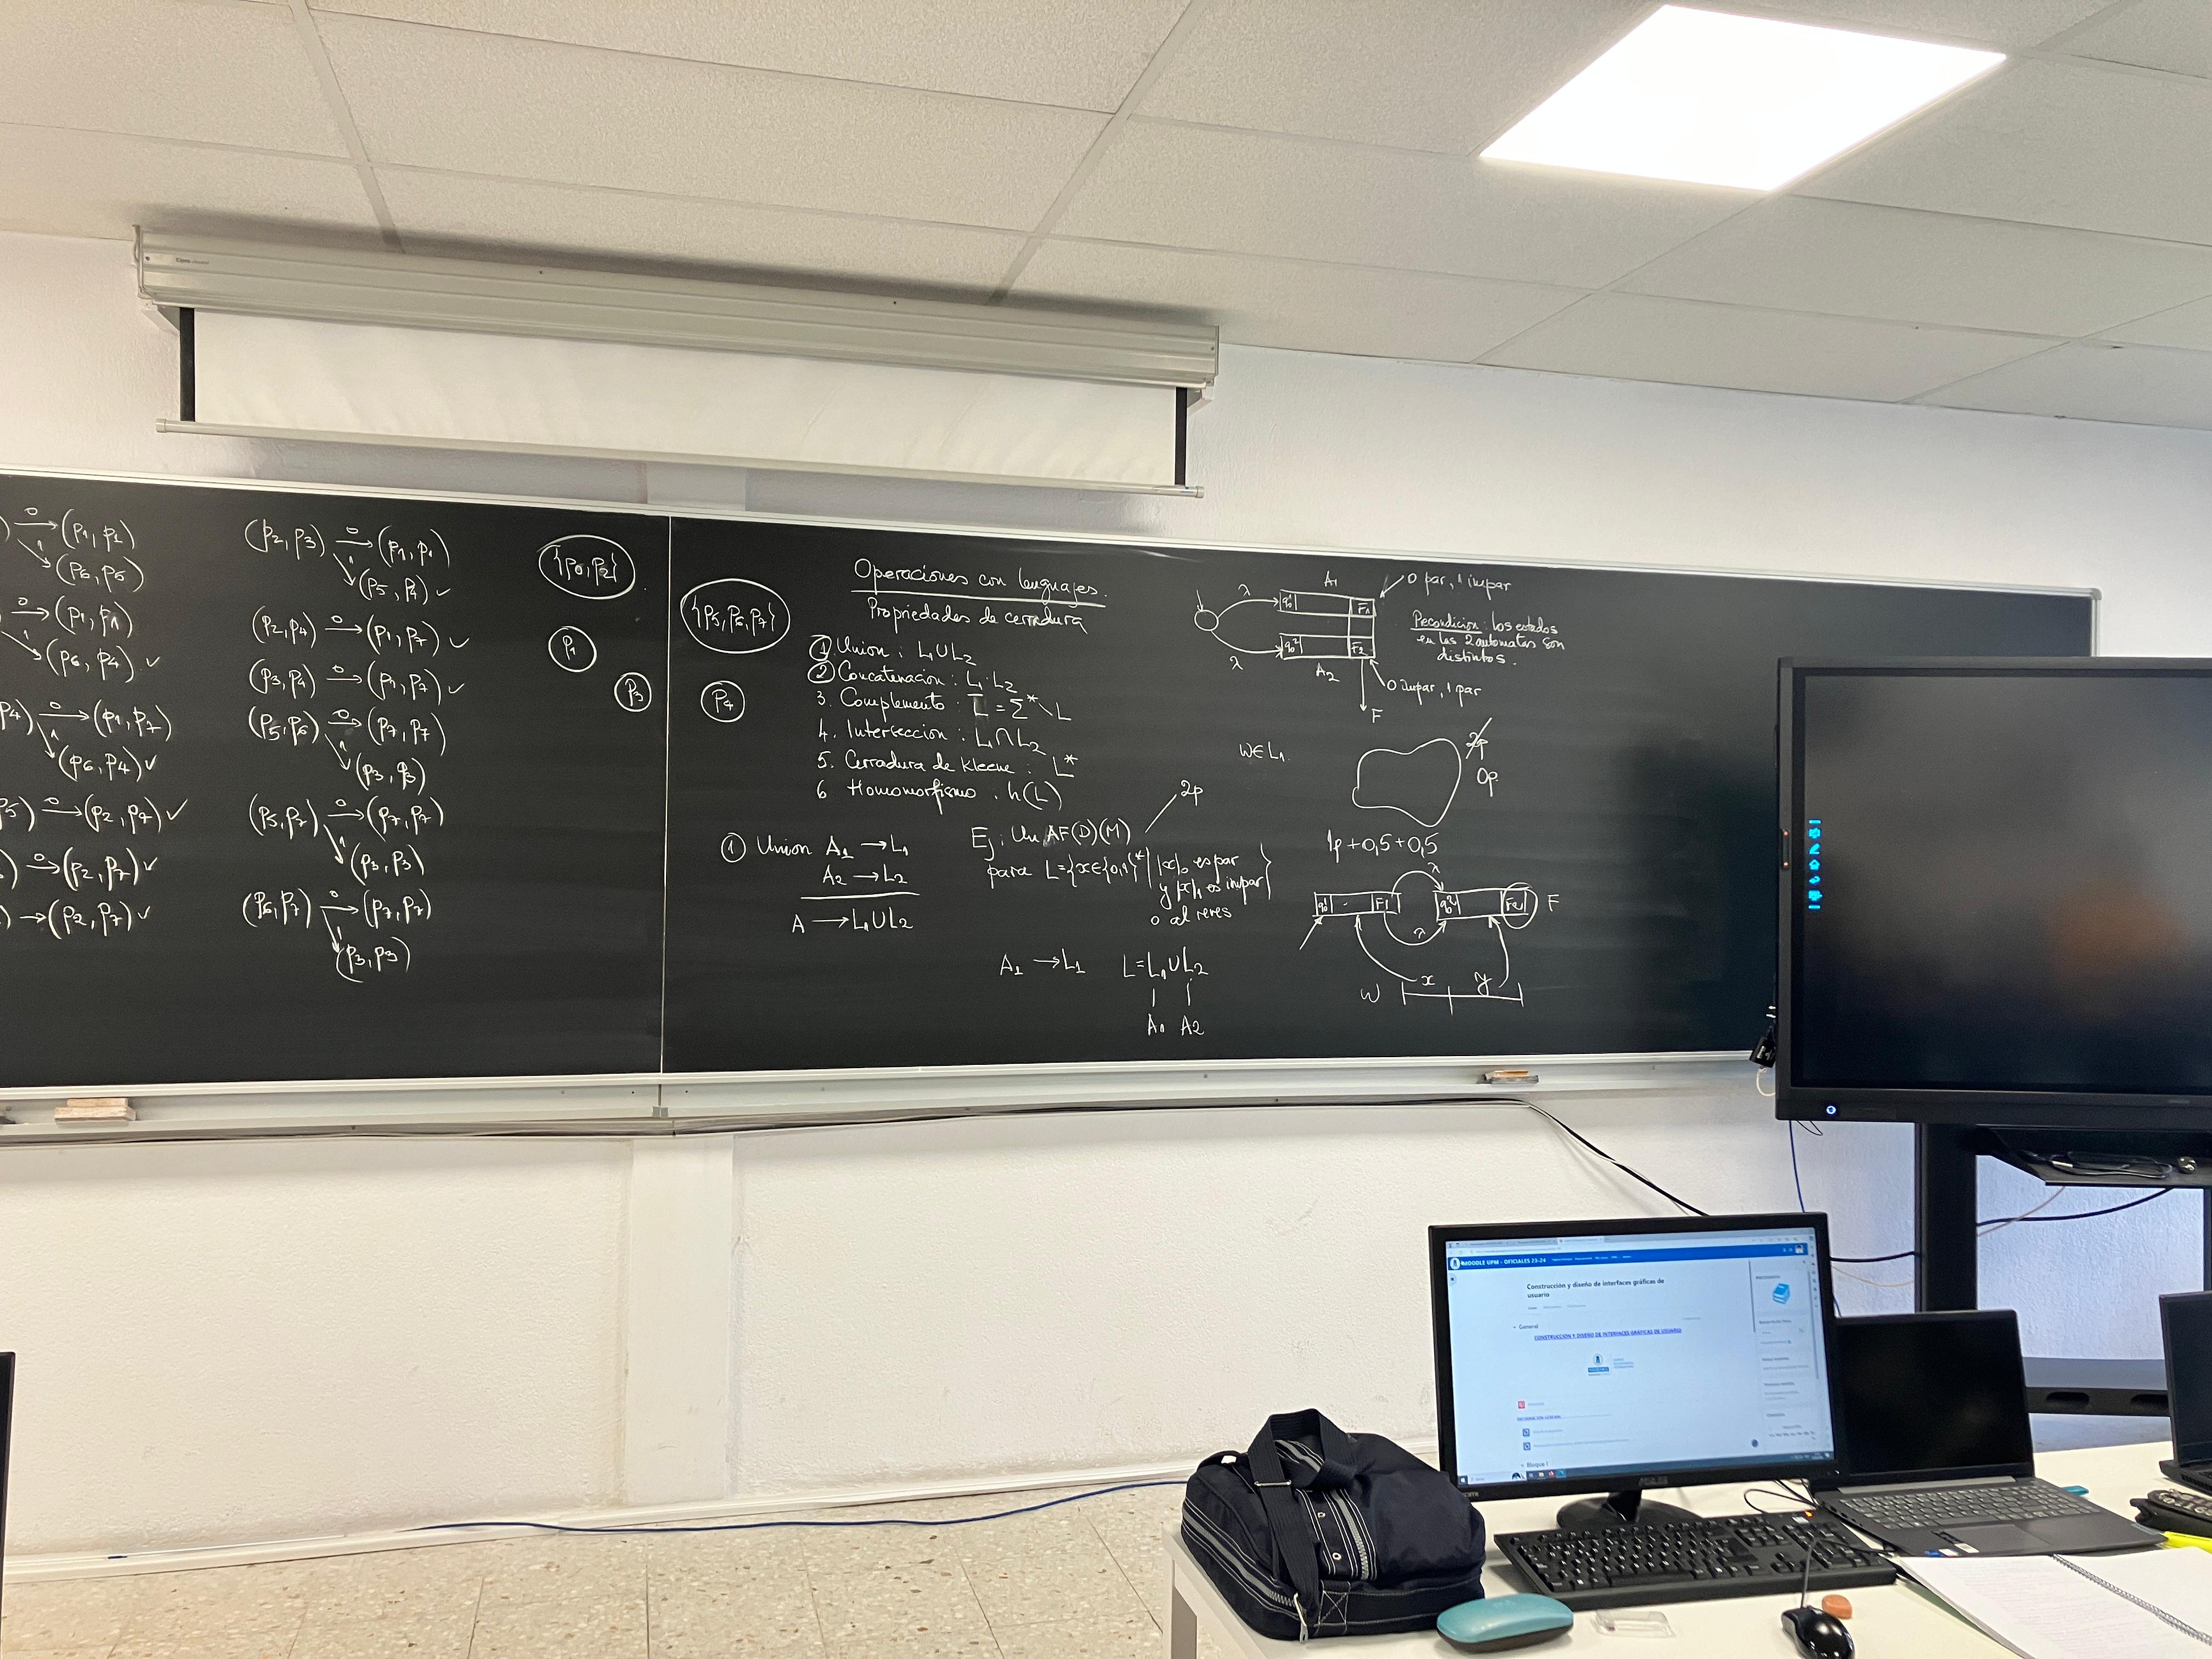 0→(p1, p2)
1↘(p6, p5)
0→(p1, p1)
1↘(p6, p4) ✓
p4) 0→(p1, p7)
1↘(p6, p4) ✓
p5) 0→(p2, p7) ✓
) 0→(p2, p7) ✓
) →(p2, p7) ✓
(p2, p3) 0→(p1, p1)
1↘(p5, p4) ✓
(p2, p4) 0→(p1, p7) ✓
(p3, p4) 0→(p1, p7) ✓
(p5, p6) 0→(p7, p7)
1↘(p3, p3)
(p5, p7) 0→(p7, p7)
1↘(p3, p3)
(p6, p7) 0→(p7, p7)
1↘(p3, p3)
{p0, p2}
p1
p3
{p5, p6, p7}
p4
Operaciones con lenguajes.
Propiedades de cerradura
① Union : L1 ∪ L2
② Concatenacion : L1·L2
3. Complemento : L̅ = Σ* \ L
4. Interseccion : L1 ∩ L2
5. Cerradura de Kleene : L*
6 Homomorfismo . h(L)
① Union A1 → L1
A2 → L2
A → L1 ∪ L2
2p
Ej: Un AF(D)(M)
para L = {x ∈ {0,1}* | |x|0 es par
y |x|1 es impar}
o al reves
A1 → L1 L = L1 ∪ L2
A1 A2
A1
0 par, 1 impar
λ
q0¹ F1
q0² F2
λ
A2
0 impar, 1 par
F
Precondicion: los estados
en los 2 automatas son
distintos.
w ∈ L1.
2p
0p
1p + 0,5 + 0,5
λ
q0¹ F1 q0² F2 F
λ
x y
w
MOODLE UPM - OFICIALES 23-24
Construcción y diseño de interfaces gráficas de
usuario
General
CONSTRUCCIÓN Y DISEÑO DE INTERFACES GRÁFICAS DE USUARIO
Bloque I
ASUS